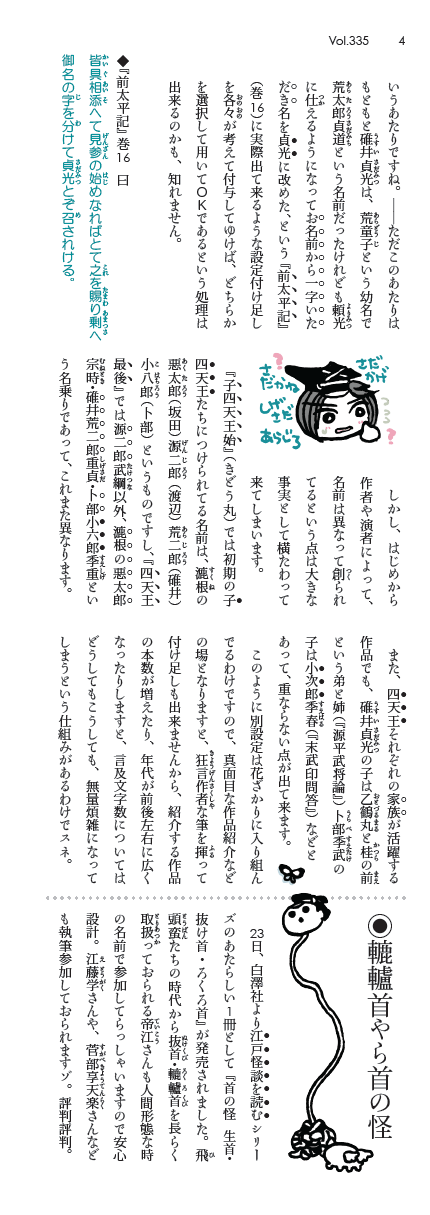 Vol.335
4
いうあたりですね。――ただこのあたりは
もともと碓井貞光は、荒童子という幼名で
荒太郎貞道という名前だったけれども頼光
に仕えるようになってお名前から一字いた
だき名を貞光に改めた、という『前太平記』
(巻16)に実際出て来るような設定付け足し
を各々が考えて付与してゆけば、どちらか
を選択して用いてOKであるという処理は
出来るのかも、知れません。
◆『前太平記』巻16 曰
皆具相添へて見参の始めなればとて之を賜り剰へ
御名の字を分けて貞光とぞ召されける。
さだかげ
さだかね
しげさだ
あらじろ
つつろ
しかし、はじめから
作者や演者によって、
名前は異なって創られ
てるという点は大きな
事実として横たわって
来てしまいます。
『子四天王始』(きどう丸)では初期の子
四天王たちにつけられてる名前は、漉根の
悪太郎(坂田)源二郎(渡辺)荒二郎(碓井)
小八郎(卜部)というものですし、『四天王
最後』では源二郎武綱以外、漉根の悪太郎
宗時・碓井荒二郎重貞・卜部小六郎季重とい
う名乗りであって、これまた異なります。
また、四天王それぞれの家族が活躍する
作品でも、碓井貞光の子は乙鶴丸と桂の前
という弟と姉(『源平武将論』)卜部季武の
子は小次郎季春(『末武印問答』)などと
あって、重ならない点が出て来ます。
このように別設定は花ざかりに入り組ん
でるわけですので、真面目な作品紹介など
の場となりますと、狂言作者な筆を揮って
付け足しも出来ませんから、紹介する作品
の本数が増えたり、年代が前後左右に広く
なったりしますと、言及文字数については
どうしてもこうしても、無量煩雑になって
しまうという仕組みがあるわけでスネ。
◉轆轤首やら首の怪
23日、白澤社より江戸怪談を読むシリー
ズのあたらしい1冊として『首の怪 生首・
抜け首・ろくろ首』が発売されました。飛
頭蛮たちの時代から抜首・轆轤首を長らく
取扱っておられる帝江さんも人間形態な時
の名前で参加してらっしゃいますので安心
設計。江藤学さんや、菅部享天楽さんなど
も執筆参加しておられますゾ。評判評判。